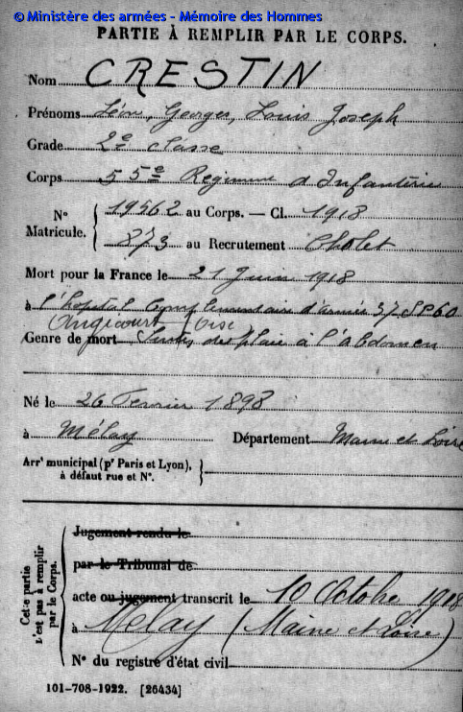 © Ministère des armées - Mémoire des Hommes
PARTIE À REMPLIR PAR LE CORPS.
Nom CRESTIN
Prénoms Léon, Georges, Louis Joseph
Grade 2e classe
Corps 55e Régiment d'Infanterie
N° Matricule. { 19562 au Corps. — Cl. 1918
873 au Recrutement Cholet
Mort pour la France le 21 Juin 1918
à l'hôpital Complémentaire d'armée 37 SP60
Angicourt Oise
Genre de mort Suites de plaie à l'abdomen
Né le 26 Février 1898
à Mélay Département Maine et Loire
Arrt municipal (pr Paris et Lyon),
à défaut rue et N°.
Cette partie n'est pas à remplir par le Corps.
Jugement rendu le
par le Tribunal de
acte ou jugement transcrit le 10 Octobre 1918
à Mélay (Maine et Loire)
N° du registre d'état civil
101-708-1922. [26434]